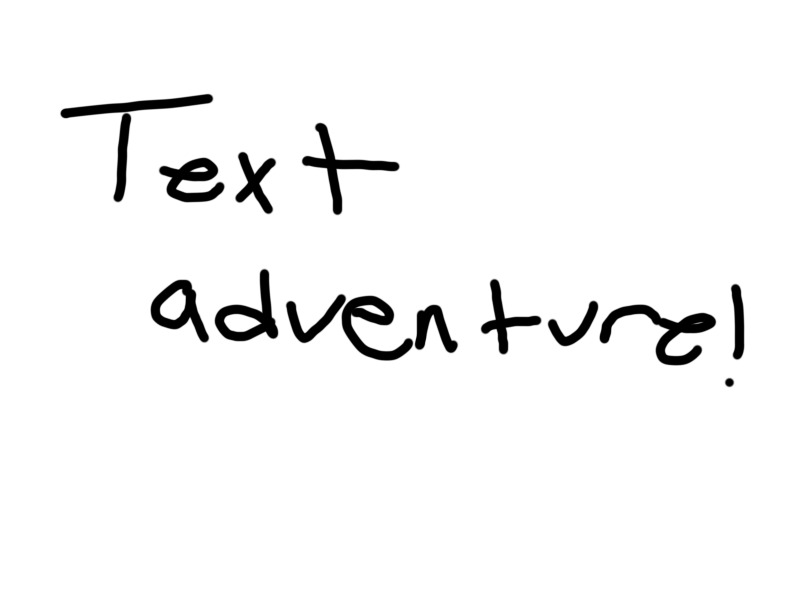 Text
adventure!